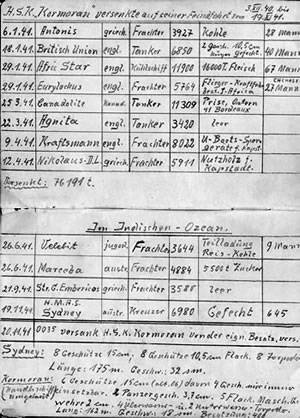 H.S.K. Kormoran versenkte auf seiner Feindfahrt vom 3.XII.40. bis 19.XI.41.
6.1.41. Antonis griech. Frachter 3927 Kohle 28 Mann
18.1.41. British Union engl. Tanker 6850 2 10,5cm 40 Mann
29.1.41. Afric Star engl. Kühlschiff 11900 16000t Fleisch 67 Mann
29.1.41. Eurylochus engl. Frachter 5764 Flieger-Kraftfahr best. f. Africa Mann
25.3.41. Canadolite kanad. Tanker 11309 Prise, Ostern 41 Bordeaux
22.3.41. Agnita engl. Tanker 3420 leer
9.4.41. Kraftsmann engl. Frachter 8022 U-Boots-Sperrgeräte f. Kapst.
12.4.41. Nikolaus-D.L. griech. Frachter 5911 Nutzholz f. Kapstadt.
Versenkt: 76191 t.
Im Indischen-Ozean.
26.6.41. Velebit jugosl. Frachte. 3644 Teilladung Reis-Kohle 9 Mann
26.6.41. Mareeba austr. Frachter 4884 5500t Zucker
21.9.41. St. G. Embericos griech. Frachter 3588 leer
19.11.41. H.M.A.S. Sydney austr. Kreuzer 6980 Gefecht 645
20.11.41 0035 versank H.S.K. Kormoran von der eign. Besatz. vers.
Sydney: 8 Geschütze 15cm, 8 Geschütze 10,5cm Flack. 8 Torpedo
Länge: 175m. Geschw: 32 sm.
Kormoran: 6 Geschütze 15cm davon 4 Gesch. nur immer
einsetzbar. 2 Panzergesch. 3,7cm, 5 Flack Masch. Ge-
wehre 2cm 4 Überwasser- 2 Unterwass.-Torpedo
Länge: 162m. Geschw: 18 sm. Besatzung: